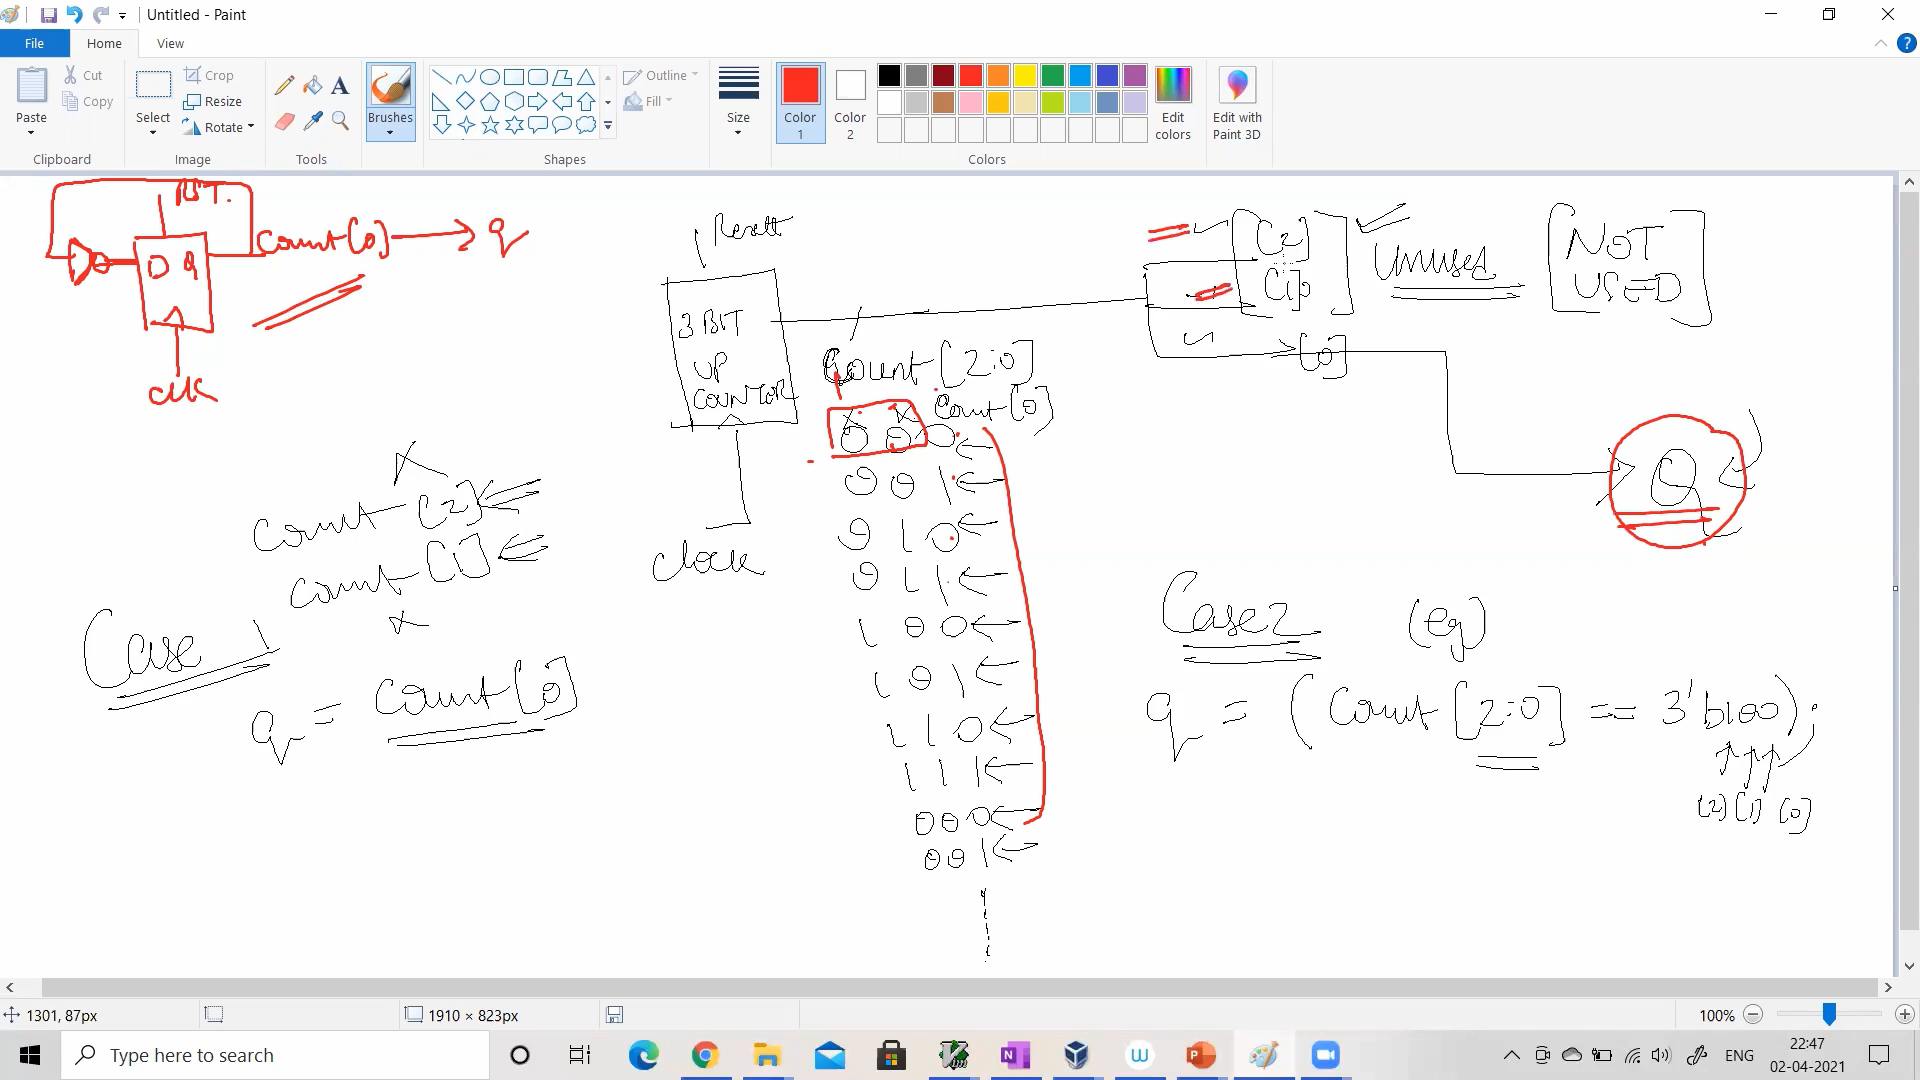 Untitled - Paint
File Home View
Paste
Cut
Copy
Clipboard
Select
Crop
Resize
Rotate
Image
Tools
Brushes
Shapes
Outline
Fill
Size
Color 1
Color 2
Edit colors
Colors
Edit with Paint 3D
RST.
D Q
count[0] → q
clk
Resett
3 BIT
UP
COUNTOR
clock
Count[2:0]
Count[0]
0 0 0
0 0 1
0 1 0
0 1 1
1 0 0
1 0 1
1 1 0
1 1 1
0 0 0
0 0 1
[2]
[1]
[0]
Unused
NOT
USED
Q
count [2]
count [1]
Case 1
q = count[0]
Case2 (eg)
q = (Count [2:0] == 3'b100);
[2] [1] [0]
1301, 87px
1910 × 823px
100%
Type here to search
ENG
22:47
02-04-2021